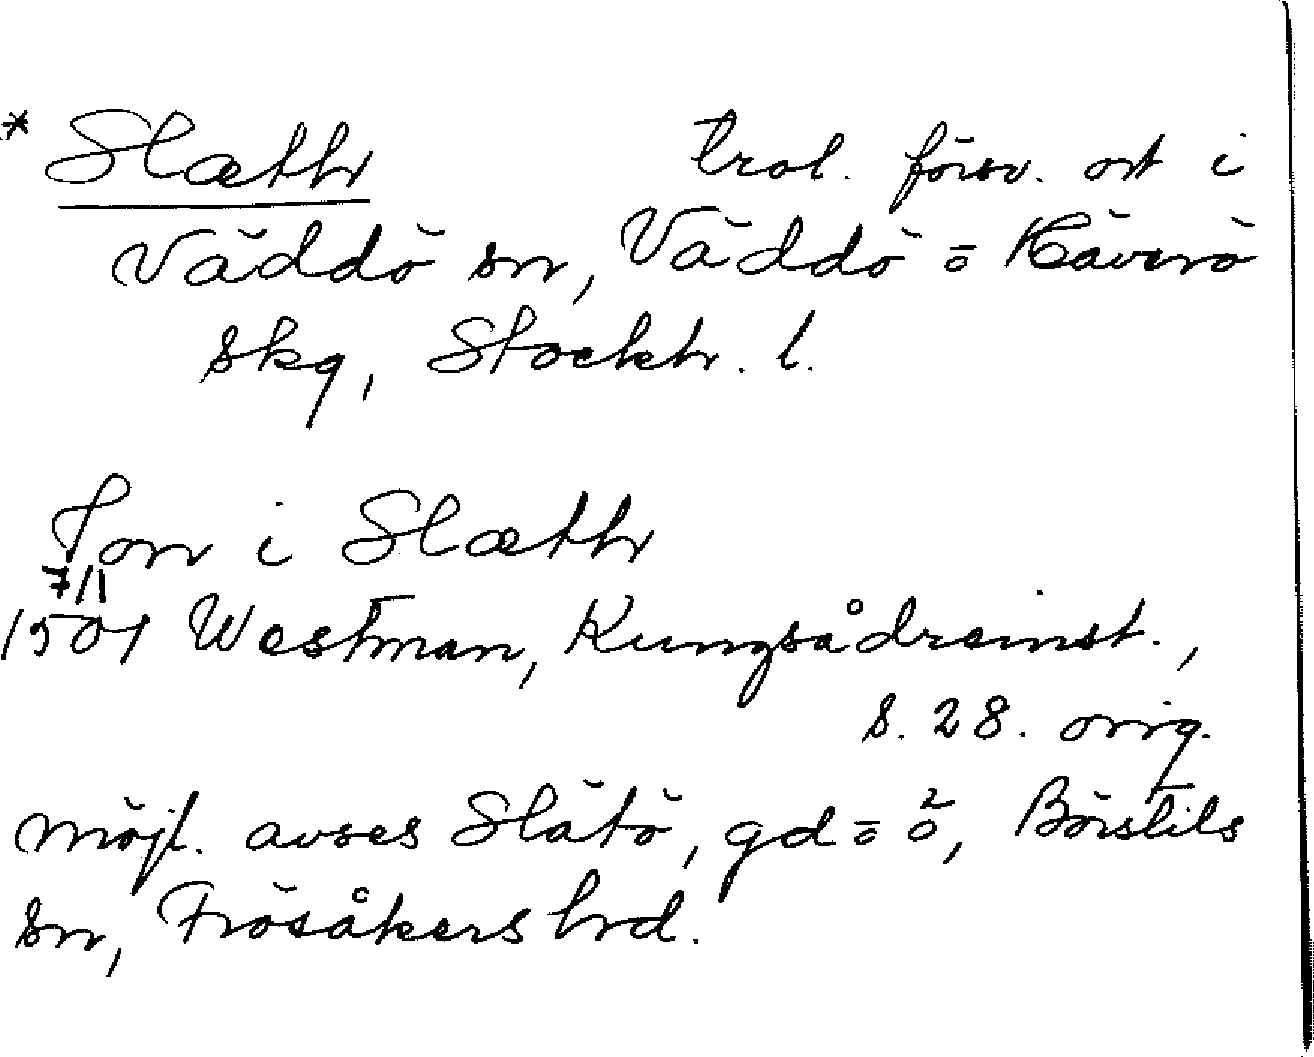 * Slæthr trol. försv. ort i
Väddö sn, Väddö o Häverö
skg, Stockh. l.
Jon i Slæthr
7/1
1501 Westman, Kungsådreinst.,
s. 28. orig.
möjl. avses Slätö, gd o ö, Börstils
sn, Frösåkers hrd.